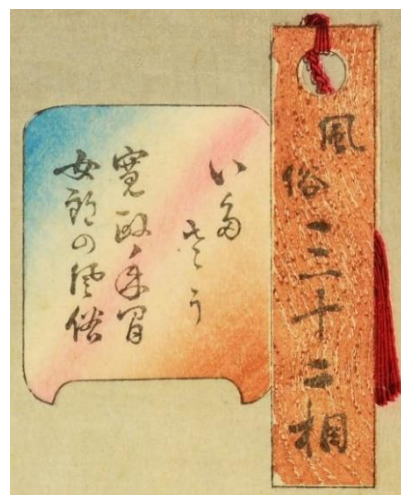 風俗三十二相
いたさう
寛政年間
女郎の風俗